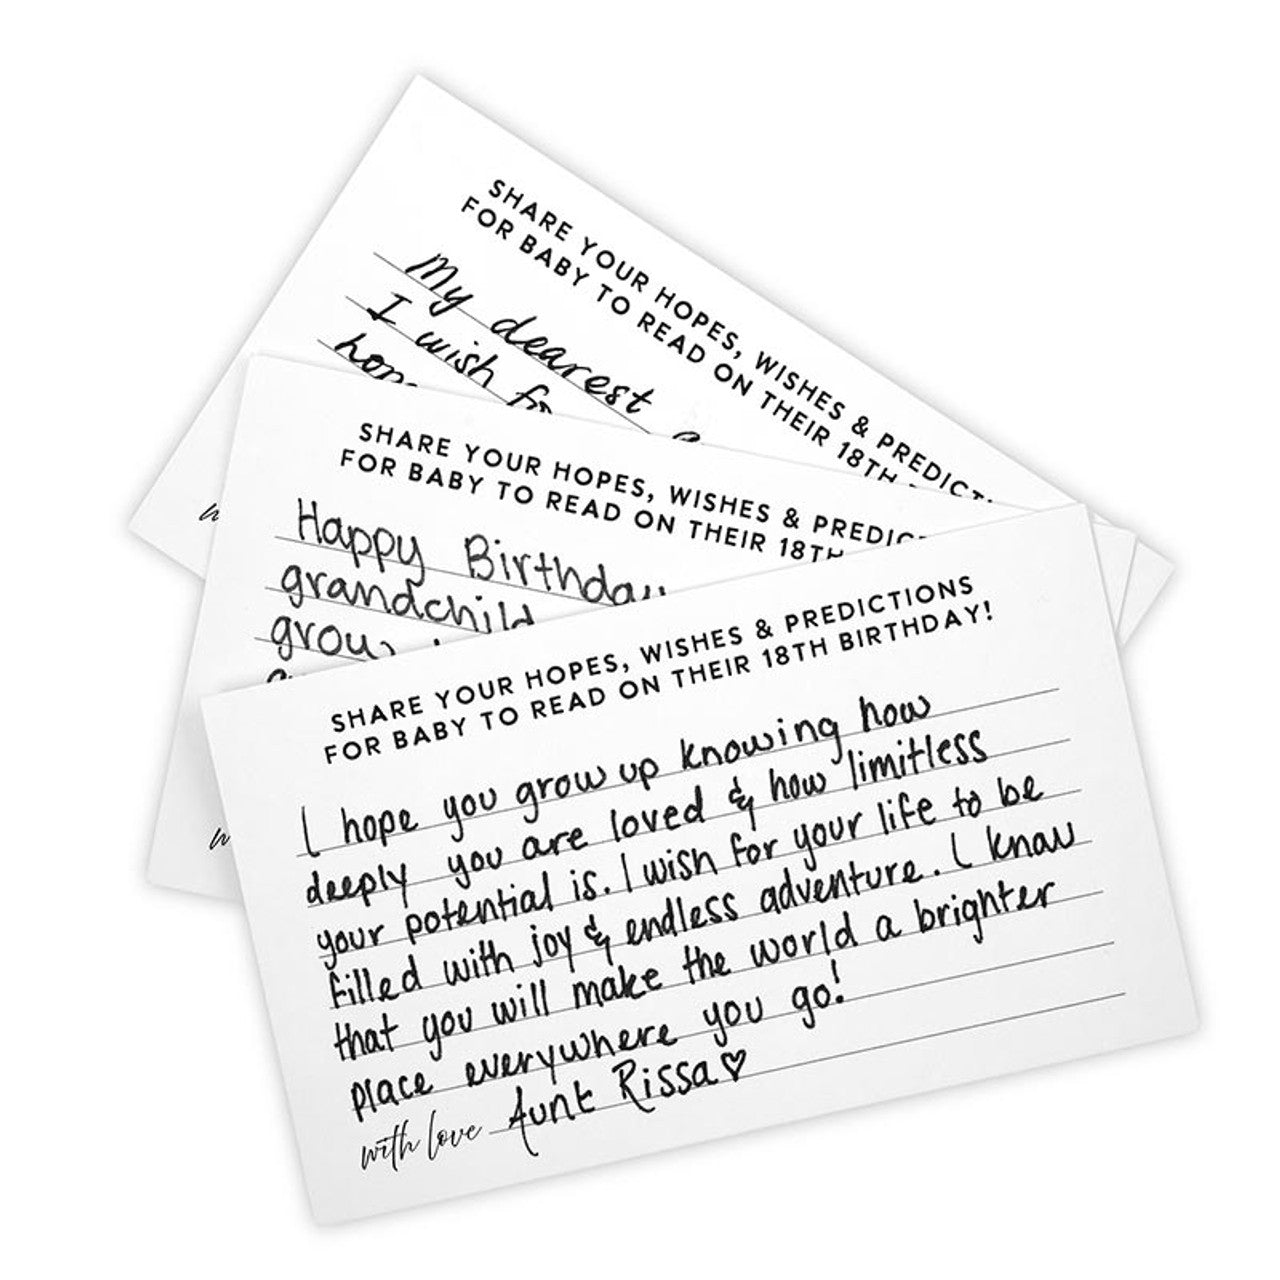 SHARE YOUR HOPES, WISHES & PREDICT
FOR BABY TO READ ON THEIR 18TH
My dearest
I wish
SHARE YOUR HOPES, WISHES & PREDIC
FOR BABY TO READ ON THEIR 18TH
Happy Birthday
grandchild
grow
SHARE YOUR HOPES, WISHES & PREDICTIONS
FOR BABY TO READ ON THEIR 18TH BIRTHDAY!
I hope you grow up knowing how
deeply you are loved & how limitless
your potential is. I wish for your life to be
filled with joy & endless adventure. I know
that you will make the world a brighter
place everywhere you go!
with love Aunt Rissa♡